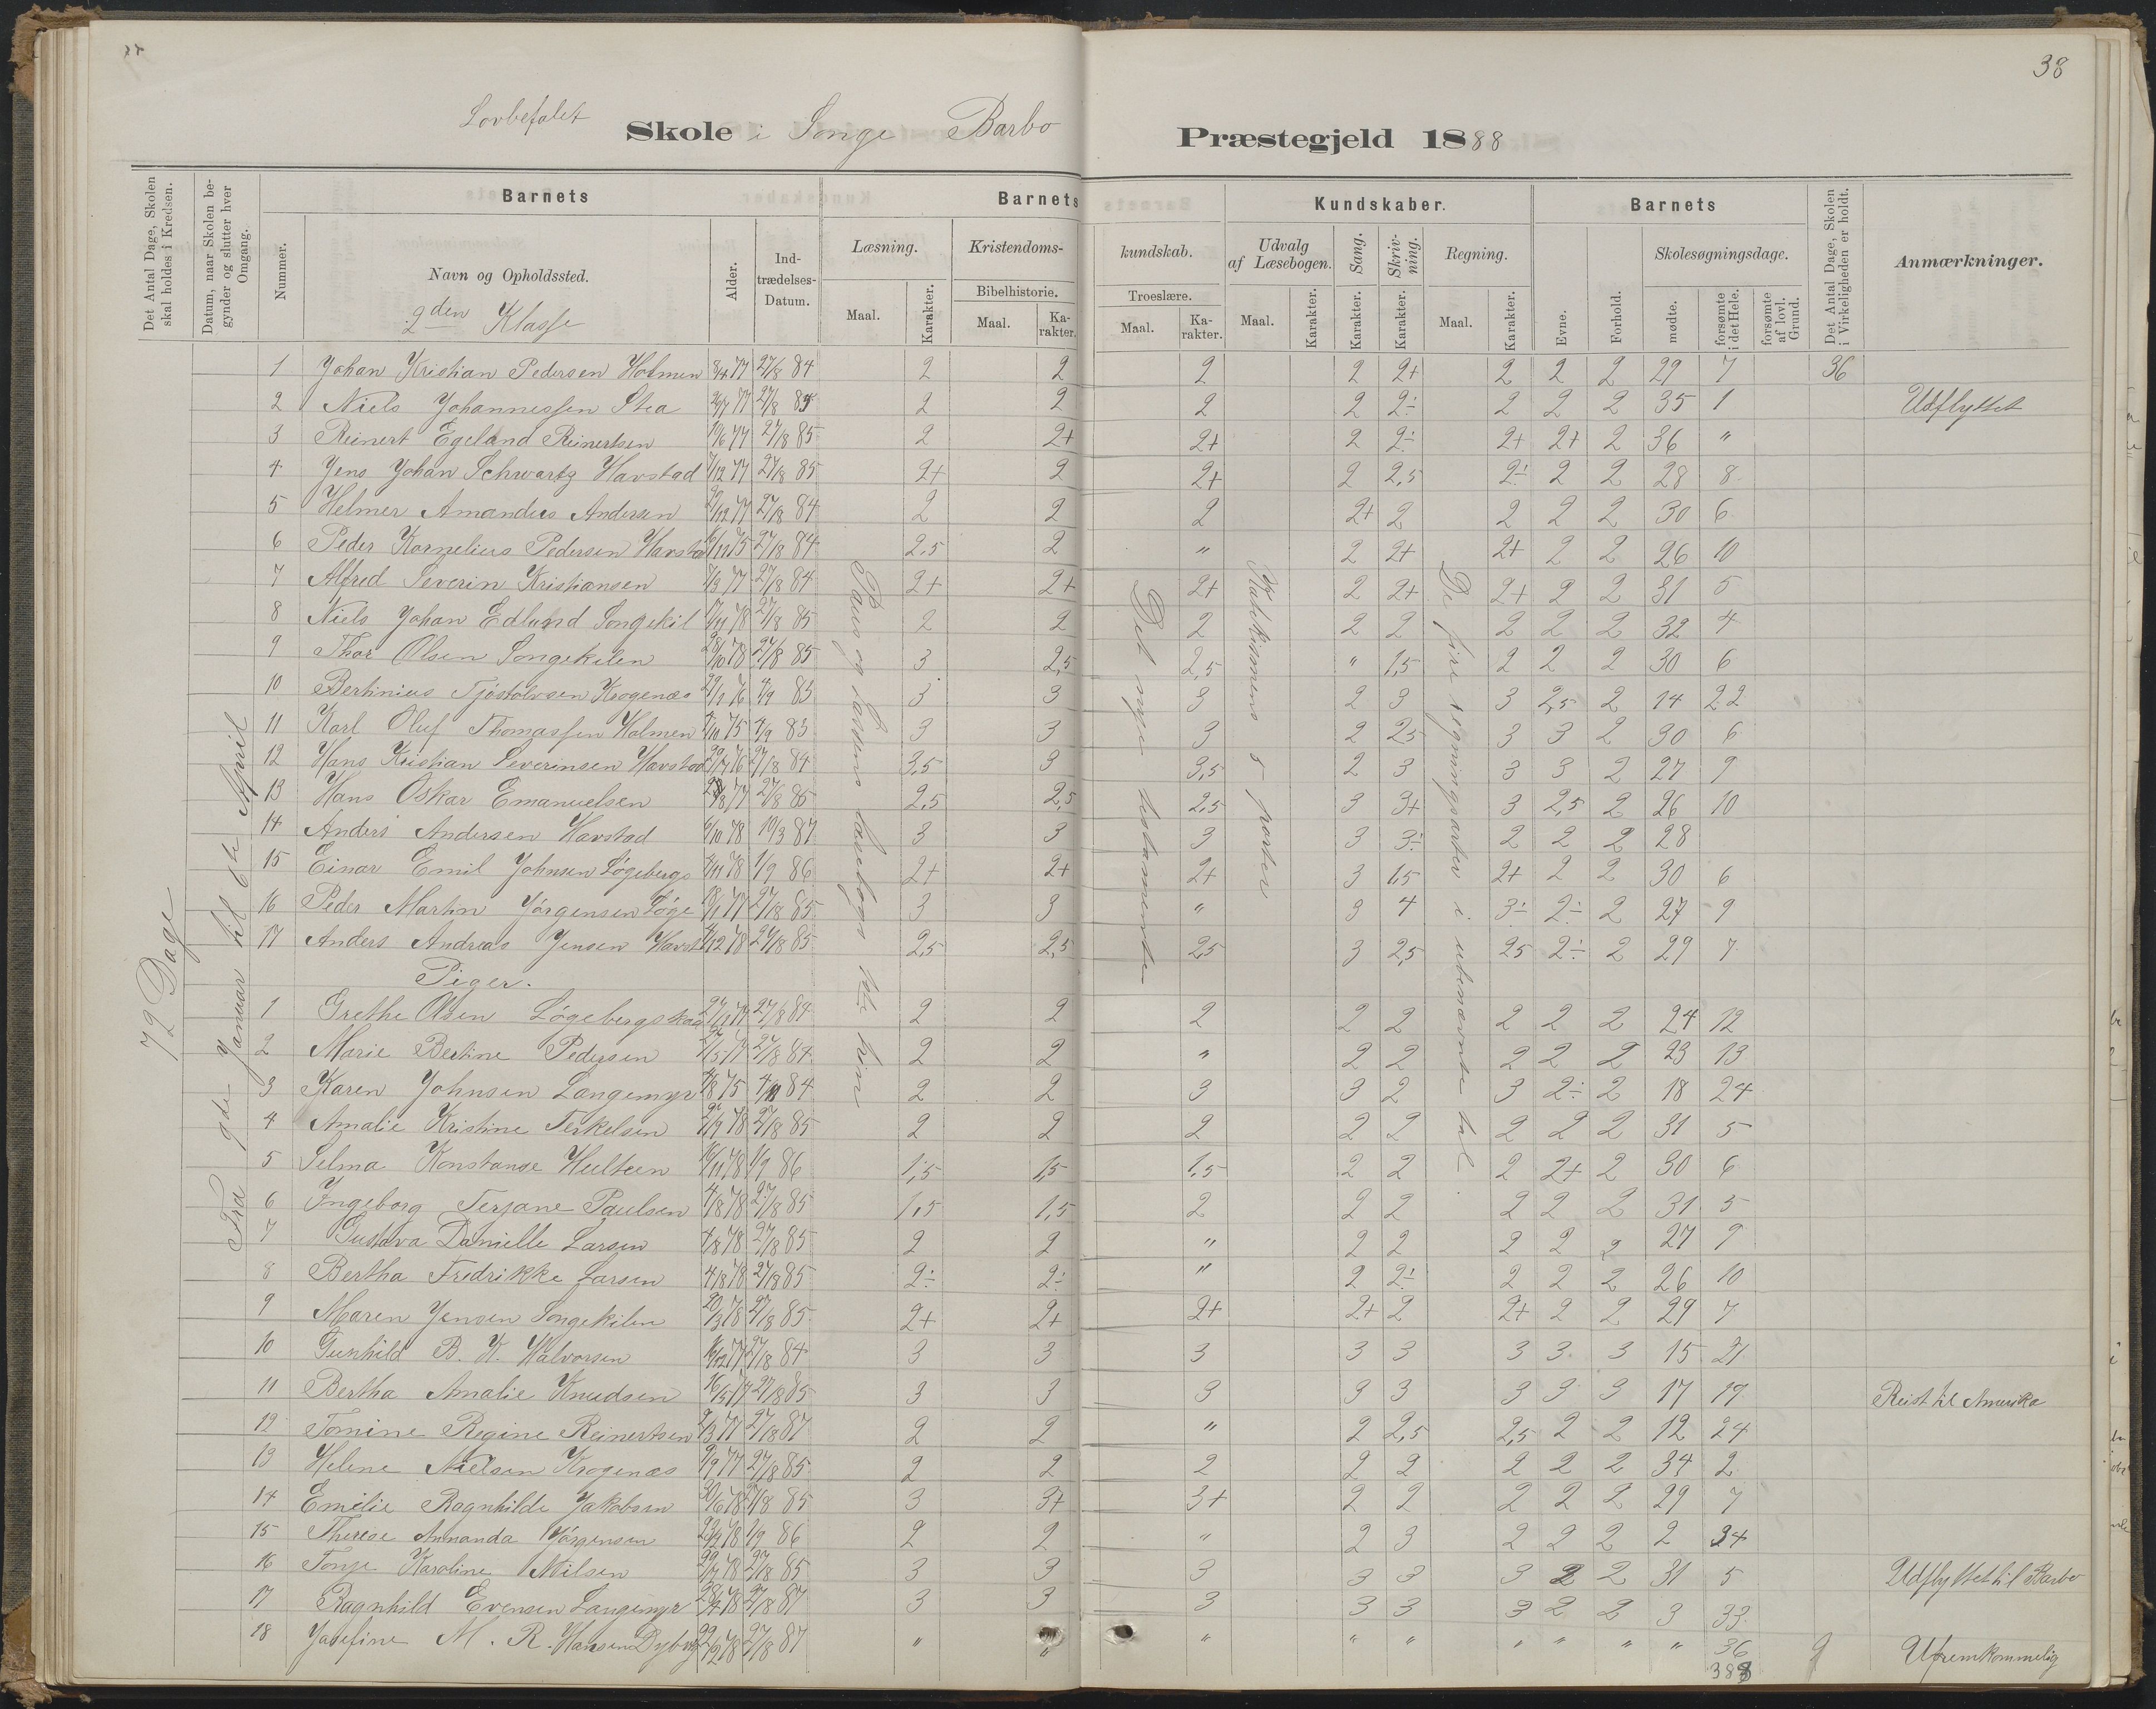 38
Lovbefalet Skole i Songe Barbo Præstegjeld 1888
Det Antal Dage, Skolen skal holdes i Kredsen.
Datum, naar Skolen begynder og slutter hver Omgang.
Nummer.
Barnets
Navn og Opholdssted.
2den Klasse
Alder.
Indtrædelses-Datum.
Barnets Kundskaber.
Læsning.
Maal.
Karakter.
Kristendoms-kundskab.
Bibelhistorie.
Maal.
Karakter.
Troeslære.
Maal.
Karakter.
Udvalg af Læsebogen.
Maal.
Karakter.
Sang.
Karakter.
Skrivning.
Karakter.
Regning.
Maal.
Karakter.
Barnets
Evne.
Forhold.
Skolesøgningsdage.
mødte.
forsømte i det Hele.
forsømte af lovl. Grund.
Det Antal Dage, Skolen i Virkeligheden er holdt.
Anmærkninger.
72 Dage
Fra 9de Januar til 6te April
Det nye testamente
Katekismens 5 parter
De fire regningsarter i ubenævnte tal.
1 Johan Kristian Pedersen Holmen 27/8 84 2 2 2 2 2+ 2 2 2 29 7 36
2 Niels Johannessen Stea 27/8 85 2 2 2 2 2÷ 2 2 2 35 1 Udflyttet
3 Reinert Egeland Reinertsen 19/6 77 27/8 85 2 2+ 2+ 2 2÷ 2+ 2+ 2 36 "
4 Jens Johan Schwartz Havstad 7/12 77 27/8 85 2+ 2 2+ 2 2,5 2÷ 2 2 28 8
5 Helmer Amandus Andersen 27/8 84 2 2 2 2+ 2 2 2 2 30 6
6 Peder Kornelius Pedersen Havstad 27/8 84 2,5 2 " 2 2+ 2+ 2 2 26 10
7 Alfred Severin Kristiansen 7/3 77 27/8 84 2+ 2+ 2+ 2 2+ 2+ 2 2 31 5
8 Niels Johan Edlund Songekil 27/8 85 2 2 2 2 2 2 2 2 32 4
9 Thor Olsen Songekilen 27/8 85 3 2,5 2,5 " 1,5 2 2 2 30 6
10 Bertinius Tjøstolvsen Krogenæs 4/9 83 3 3 3 2 3 3 2,5 2 14 22
11 Karl Oluf Thomassen Holmen 4/10 75 4/9 83 3 3 3 2 2,5 3 3 2 30 6
12 Hans Kristian Severinsen Havstad 27/8 84 3,5 3 3,5 2 3 3 3 2 27 9
13 Hans Oskar Emanuelsen 27/8 85 2,5 2,5 2,5 3 3+ 3 2,5 2 26 10
14 Anders Andersen Havstad 10/3 87 3 3 3 3 3÷ 2 2 2 28
15 Einar Emil Johnsen Løgebergs 1/9 86 2+ 2+ 2+ 3 1,5 2+ 2 2 30 6
16 Peder Martin Jørgensen Løge 27/8 85 3 3 " 3 4 3÷ 2÷ 2 27 9
17 Anders Andreas Jensen Havst 27/8 85 2,5 2,5 2,5 3 2,5 2,5 2÷ 2 29 7
Piger.
1 Grethe Olsen Løgebergskaa 27/8 84 2 2 2 2 2 2 2 2 24 12
2 Marie Bertine Pedersen 27/8 84 2 2 " 2 2 2 2 2 23 13
3 Karen Johnsen Langemyr 2 2 3 3 2 3 2÷ 2 18 24
4 Amalie Kristine Terkelsen 27/8 85 2 2 2 2 2 2 2 2 31 5
5 Selma Konstanse Hulteen 1/9 86 1,5 1,5 1,5 2 2 2 2+ 2 30 6
6 Ingeborg Terjane Paulsen 4/8 78 27/8 85 1,5 1,5 2 2 2 2 2 2 31 5
7 Gustava Danielle Larsen 4/8 78 27/8 85 2 2 " 2 2 2 2 2 27 9
8 Bertha Fredrikke Larsen 4/8 78 27/8 85 2÷ 2÷ " 2 2÷ 2 2 2 26 10
9 Maren Jensen Songekilen 20/3 78 27/8 85 2+ 2+ 2+ 2+ 2 2+ 2 2 29 7
10 Gunhild B. K. Halvorsen 27/8 84 3 3 3 3 3 3 3 3 15 21
11 Bertha Amalie Knudsen 16/5 77 27/8 85 3 3 3 3 3 3 3 3 17 19 Reist til Amerika
12 Tomine Regine Reinertsen 27/8 87 2 2 " 2 2,5 2,5 2 2 12 24
13 Helene Nielsen Krogenæs 27/8 85 2 2 2 2 2 2 2 2 34 2
14 Emilie Ragnhilde Jakobsen 27/8 85 3 3+ 3+ 2 2 2 2 2 29 7
15 Therese Amanda Jørgensen 1/9 86 2 2 " 2 3 2 2 2 2 34
16 Tonje Karoline Nilsen 27/8 85 3 3 3 3 3 3 2 2 31 5 Udflyttet til Barbo
17 Ragnhild Evensen Langemyr 27/8 87 3 3 3 3 3 3 2 2 3 33
18 Josefine M. R. Hansen Dybvig 27/8 87 " " " " " " " " " 36 Ufremkommelig
388